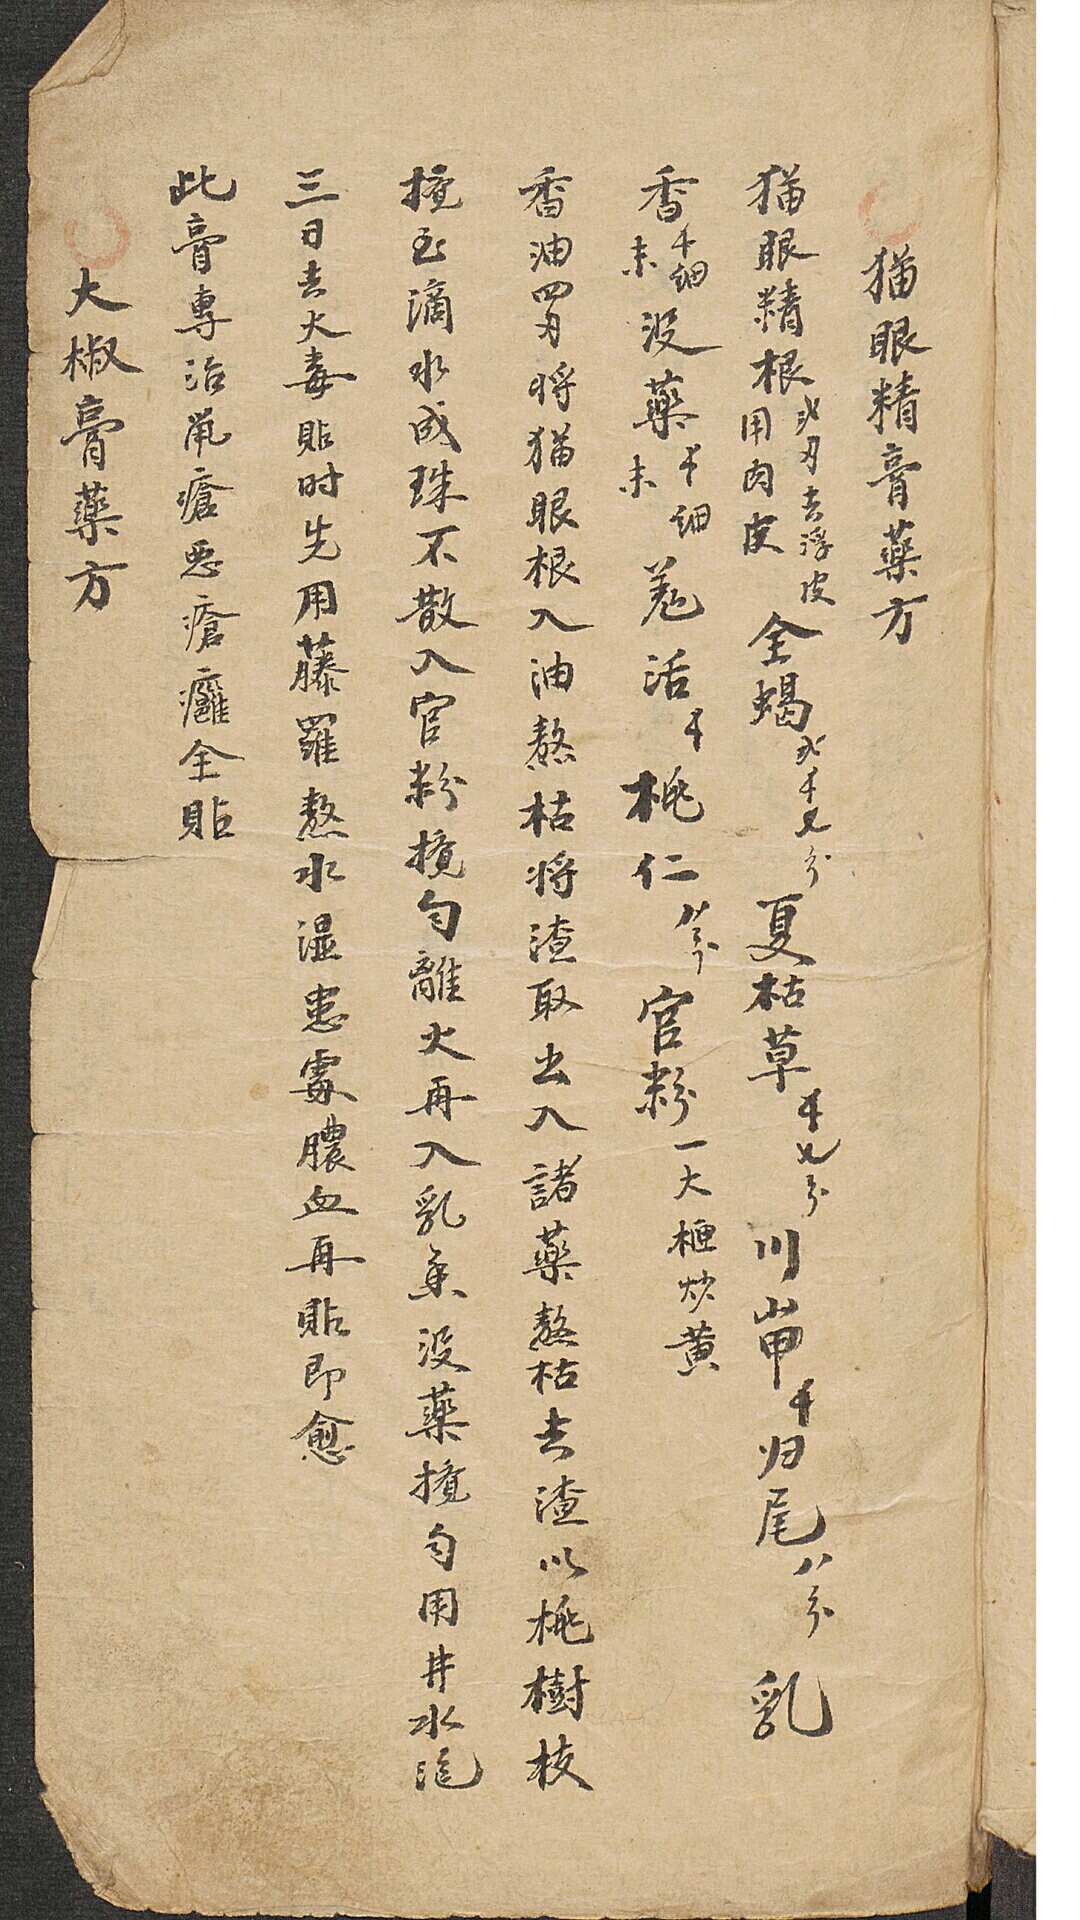 猫眼精膏藥方
猫眼精根弍刄去浮皮用肉皮全蝎弍千七分夏枯草千七分川山甲千归尾八分乳
香千细末没藥千细末羗活千桃仁八分官粉一大極炒黄
香油四刄将猫眼根入油熬枯将渣取出入諸藥熬枯去渣以桃樹枝
攪至滴水成珠不散入官粉攪匀離火再入乳香没藥攪匀用井水泡
三日去火毒貼时先用藤羅熬水湿患處膿血再貼即愈
此膏專治鼠瘡惡瘡癰全貼
大椒膏藥方